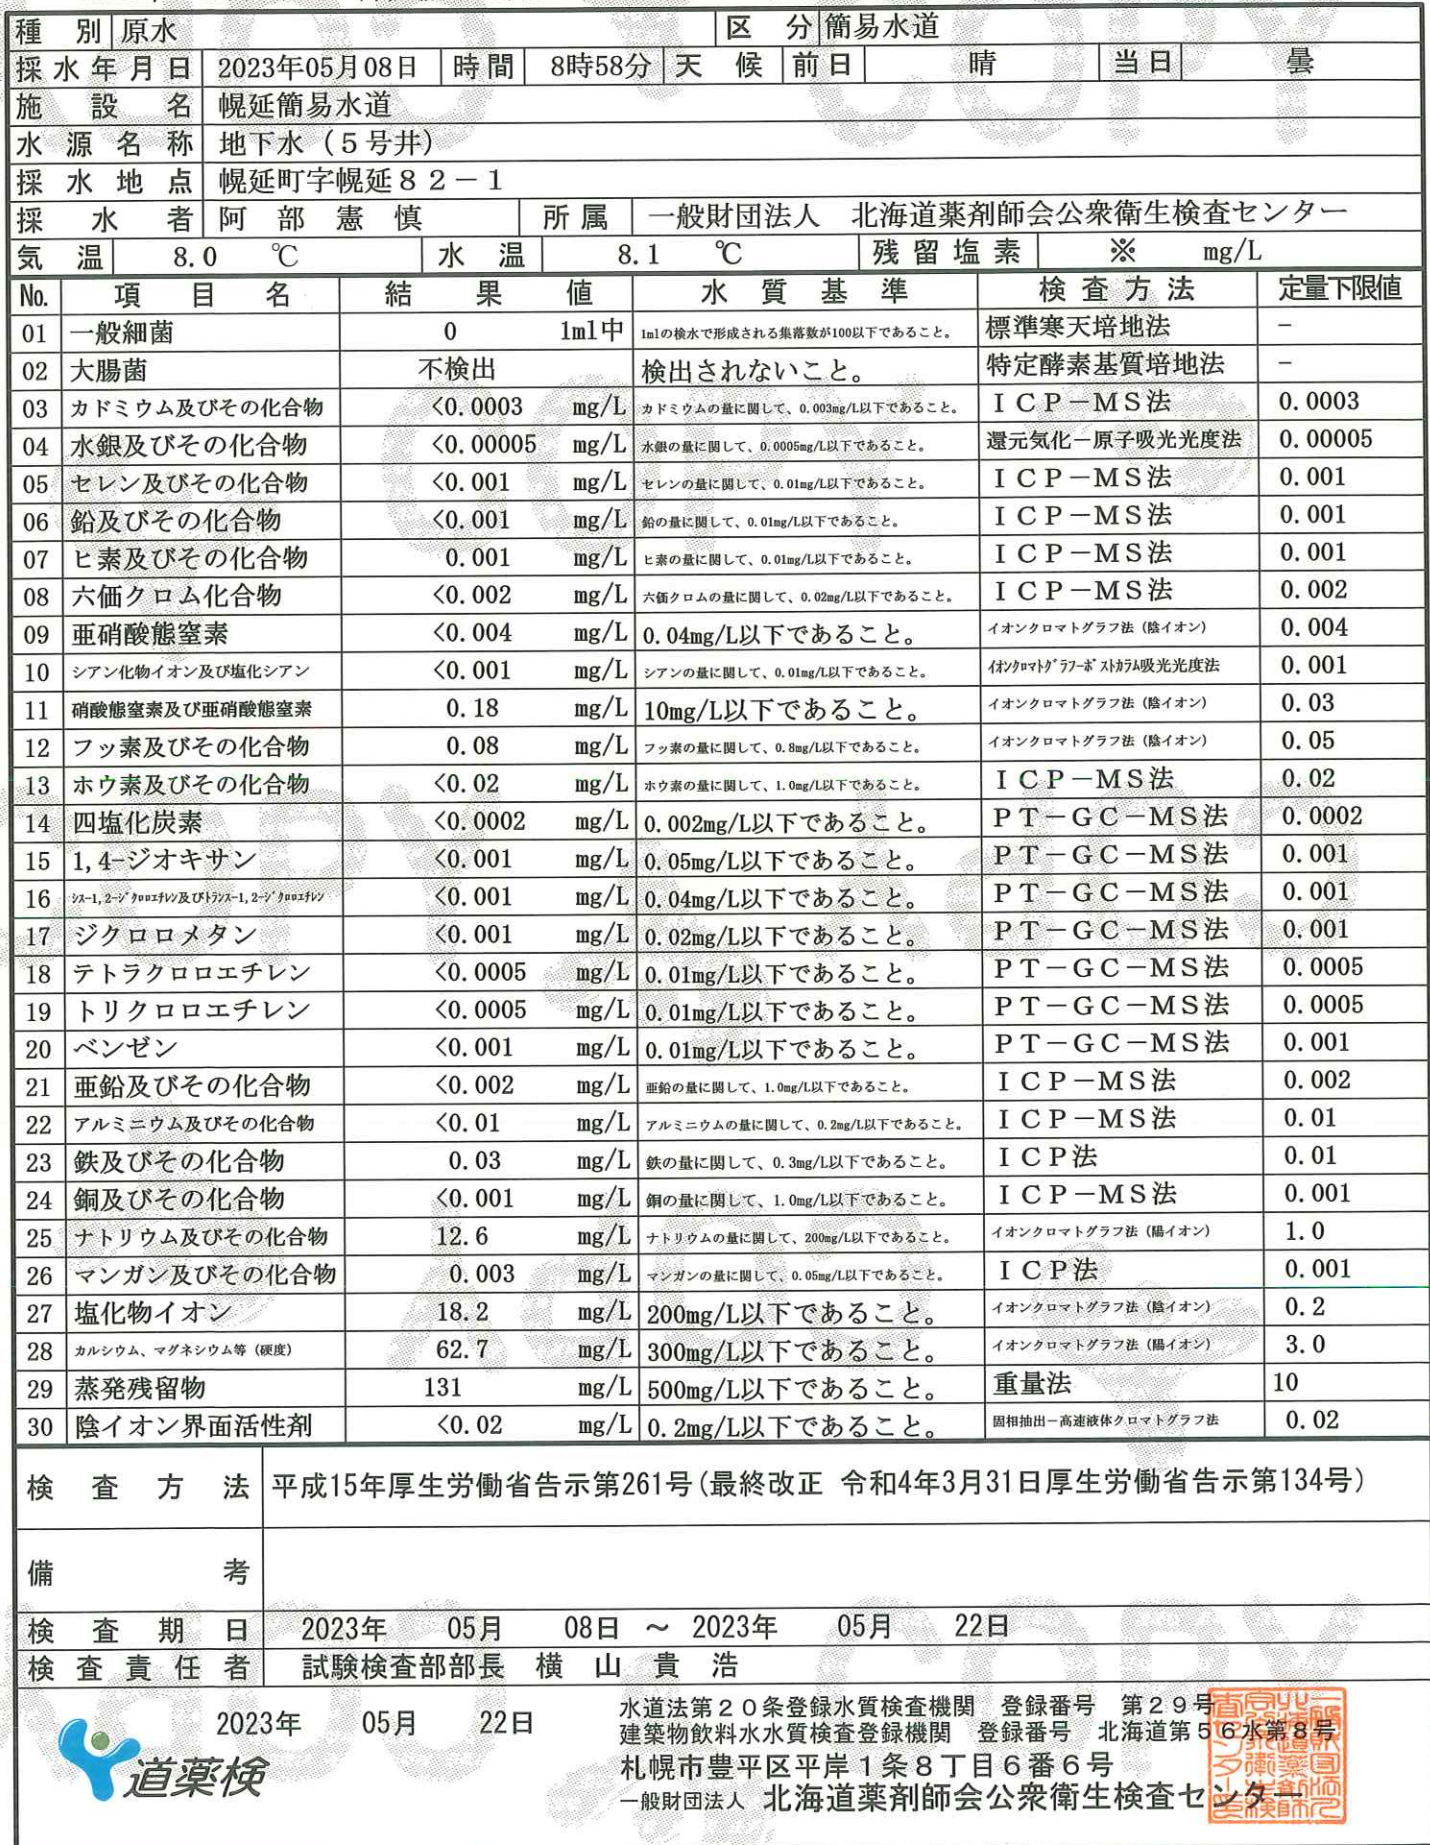 種別 原水 区分 簡易水道
採水年月日 2023年05月08日 時間 8時58分 天候 前日 晴 当日 曇
施設名 幌延簡易水道
水源名称 地下水（5号井）
採水地点 幌延町字幌延８２－１
採水者 阿部憲慎 所属 一般財団法人 北海道薬剤師会公衆衛生検査センター
気温 8.0 ℃ 水温 8.1 ℃ 残留塩素 ※ mg/L
No. 項目名 結果値 水質基準 検査方法 定量下限値
01 一般細菌 0 1ml中 1mlの検水で形成される集落数が100以下であること。 標準寒天培地法 －
02 大腸菌 不検出 検出されないこと。 特定酵素基質培地法 －
03 カドミウム及びその化合物 <0.0003 mg/L カドミウムの量に関して、0.003mg/L以下であること。 ＩＣＰ－ＭＳ法 0.0003
04 水銀及びその化合物 <0.00005 mg/L 水銀の量に関して、0.0005mg/L以下であること。 還元気化－原子吸光光度法 0.00005
05 セレン及びその化合物 <0.001 mg/L セレンの量に関して、0.01mg/L以下であること。 ＩＣＰ－ＭＳ法 0.001
06 鉛及びその化合物 <0.001 mg/L 鉛の量に関して、0.01mg/L以下であること。 ＩＣＰ－ＭＳ法 0.001
07 ヒ素及びその化合物 0.001 mg/L ヒ素の量に関して、0.01mg/L以下であること。 ＩＣＰ－ＭＳ法 0.001
08 六価クロム化合物 <0.002 mg/L 六価クロムの量に関して、0.02mg/L以下であること。 ＩＣＰ－ＭＳ法 0.002
09 亜硝酸態窒素 <0.004 mg/L 0.04mg/L以下であること。 イオンクロマトグラフ法（陰イオン） 0.004
10 シアン化物イオン及び塩化シアン <0.001 mg/L シアンの量に関して、0.01mg/L以下であること。 ｲｵﾝｸﾛﾏﾄｸﾞﾗﾌｰﾎﾟｽﾄｶﾗﾑ吸光光度法 0.001
11 硝酸態窒素及び亜硝酸態窒素 0.18 mg/L 10mg/L以下であること。 イオンクロマトグラフ法（陰イオン） 0.03
12 フッ素及びその化合物 0.08 mg/L フッ素の量に関して、0.8mg/L以下であること。 イオンクロマトグラフ法（陰イオン） 0.05
13 ホウ素及びその化合物 <0.02 mg/L ホウ素の量に関して、1.0mg/L以下であること。 ＩＣＰ－ＭＳ法 0.02
14 四塩化炭素 <0.0002 mg/L 0.002mg/L以下であること。 ＰＴ－ＧＣ－ＭＳ法 0.0002
15 1,4-ジオキサン <0.001 mg/L 0.05mg/L以下であること。 ＰＴ－ＧＣ－ＭＳ法 0.001
16 ｼｽ-1,2-ｼﾞｸﾛﾛｴﾁﾚﾝ及びﾄﾗﾝｽ-1,2-ｼﾞｸﾛﾛｴﾁﾚﾝ <0.001 mg/L 0.04mg/L以下であること。 ＰＴ－ＧＣ－ＭＳ法 0.001
17 ジクロロメタン <0.001 mg/L 0.02mg/L以下であること。 ＰＴ－ＧＣ－ＭＳ法 0.001
18 テトラクロロエチレン <0.0005 mg/L 0.01mg/L以下であること。 ＰＴ－ＧＣ－ＭＳ法 0.0005
19 トリクロロエチレン <0.0005 mg/L 0.01mg/L以下であること。 ＰＴ－ＧＣ－ＭＳ法 0.0005
20 ベンゼン <0.001 mg/L 0.01mg/L以下であること。 ＰＴ－ＧＣ－ＭＳ法 0.001
21 亜鉛及びその化合物 <0.002 mg/L 亜鉛の量に関して、1.0mg/L以下であること。 ＩＣＰ－ＭＳ法 0.002
22 アルミニウム及びその化合物 <0.01 mg/L アルミニウムの量に関して、0.2mg/L以下であること。 ＩＣＰ－ＭＳ法 0.01
23 鉄及びその化合物 0.03 mg/L 鉄の量に関して、0.3mg/L以下であること。 ＩＣＰ法 0.01
24 銅及びその化合物 <0.001 mg/L 銅の量に関して、1.0mg/L以下であること。 ＩＣＰ－ＭＳ法 0.001
25 ナトリウム及びその化合物 12.6 mg/L ナトリウムの量に関して、200mg/L以下であること。 イオンクロマトグラフ法（陽イオン） 1.0
26 マンガン及びその化合物 0.003 mg/L マンガンの量に関して、0.05mg/L以下であること。 ＩＣＰ法 0.001
27 塩化物イオン 18.2 mg/L 200mg/L以下であること。 イオンクロマトグラフ法（陰イオン） 0.2
28 カルシウム、マグネシウム等（硬度） 62.7 mg/L 300mg/L以下であること。 イオンクロマトグラフ法（陽イオン） 3.0
29 蒸発残留物 131 mg/L 500mg/L以下であること。 重量法 10
30 陰イオン界面活性剤 <0.02 mg/L 0.2mg/L以下であること。 固相抽出－高速液体クロマトグラフ法 0.02
検査方法 平成15年厚生労働省告示第261号(最終改正 令和4年3月31日厚生労働省告示第134号)
備考
検査期日 2023年 05月 08日 ～ 2023年 05月 22日
検査責任者 試験検査部部長 横山貴浩
2023年 05月 22日
道薬検
水道法第２０条登録水質検査機関 登録番号 第２９号
建築物飲料水水質検査登録機関 登録番号 北海道第５６水第８号
札幌市豊平区平岸１条８丁目６番６号
一般財団法人 北海道薬剤師会公衆衛生検査センター
COPY